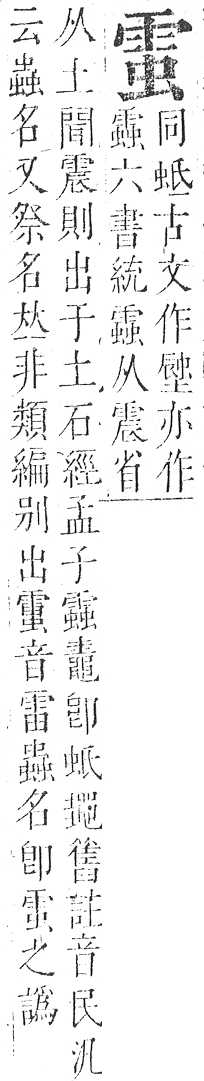 同蚔古文作亦作
六書統从震省
从土聞震則出于土石經孟子鼃卽蚔舊註音民汎
云蟲名又祭名𠀤非類編别出音雷蟲名卽之譌